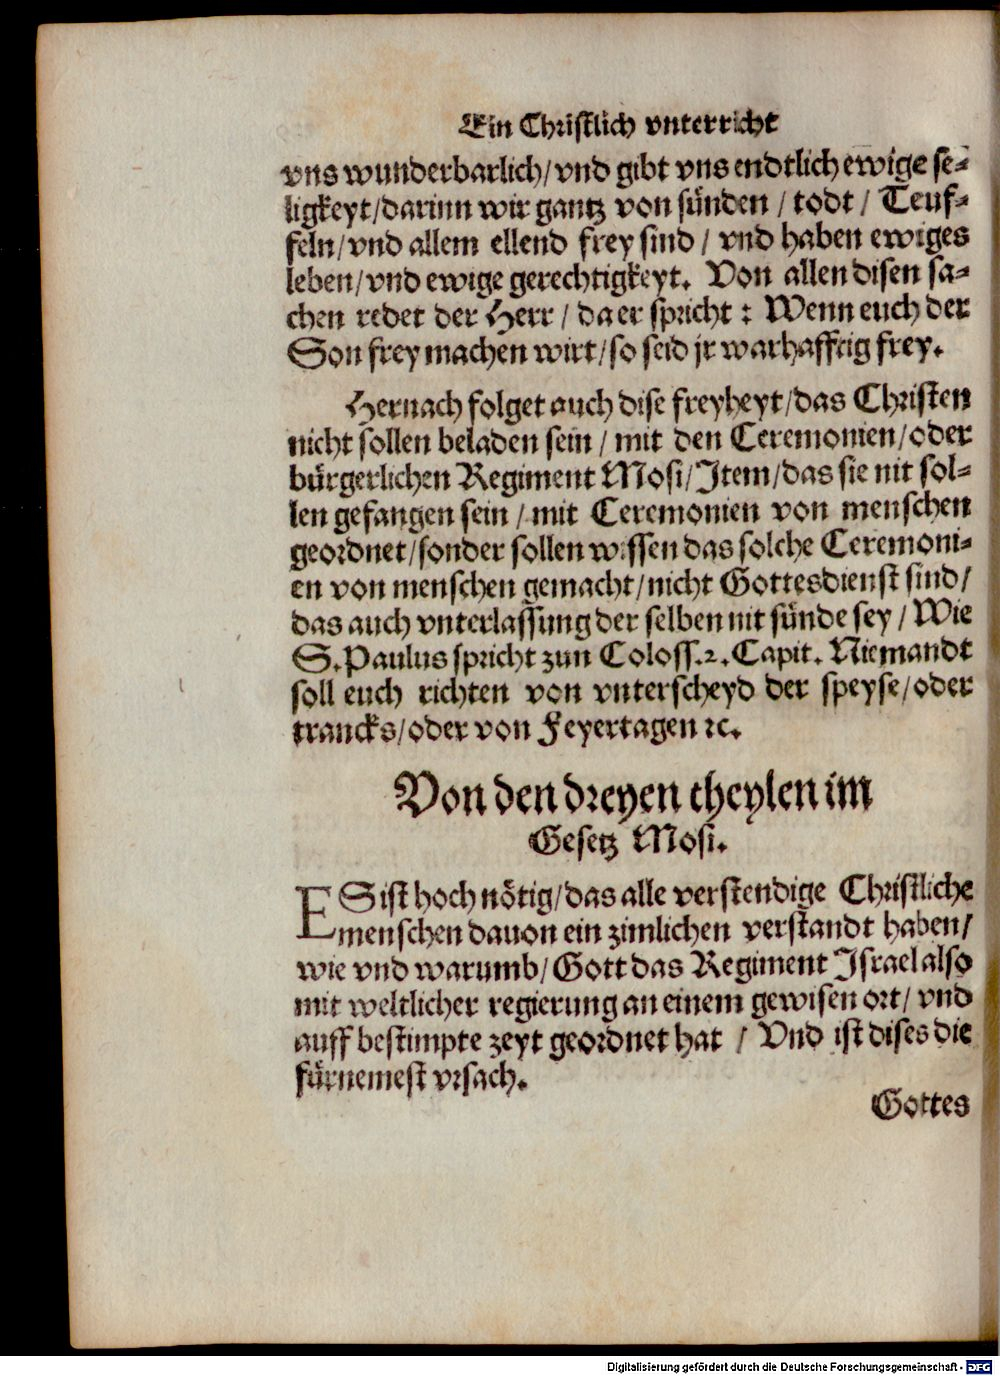 Ein Christlich vnterricht
vns wunderbarlich/vnd gibt vns endtlich ewige se-
ligkeyt/darinn wir gantz von sünden / todt / Teuf-
feln/vnd allem ellend frey sind / vnd haben ewiges
leben/vnd ewige gerechtigkeyt. Von allen disen sa-
chen redet der Herr / da er spricht : Wenn euch der
Son frey machen wirt/so seid jr warhafftig frey.
Hernach folget auch dise freyheyt/das Christen
nicht sollen beladen sein / mit den Ceremonien/oder
bürgerlichen Regiment Mosi/Item/das sie nit sol-
len gefangen sein / mit Ceremonien von menschen
geordnet/sonder sollen wissen das solche Ceremoni-
en von menschen gemacht/nicht Gottesdienst sind/
das auch vnterlassung der selben nit sünde sey / Wie
S. Paulus spricht zun Coloss.2. Capit. Niemandt
soll euch richten von vnterscheyd der speyse/oder
trancks/oder von Feyertagen ꝛc.
Von den dreyen theylen im
Gesetz Mosi.
ES ist hoch nötig/das alle verstendige Christliche
menschen dauon ein zimlichen verstandt haben/
wie vnd warumb/Gott das Regiment Israel also
mit weltlicher regierung an einem gewisen ort/ vnd
auff bestimpte zeyt geordnet hat / Vnd ist dises die
fürnemest vrsach.
Gottes
Digitalisierung gefördert durch die Deutsche Forschungsgemeinschaft - DFG